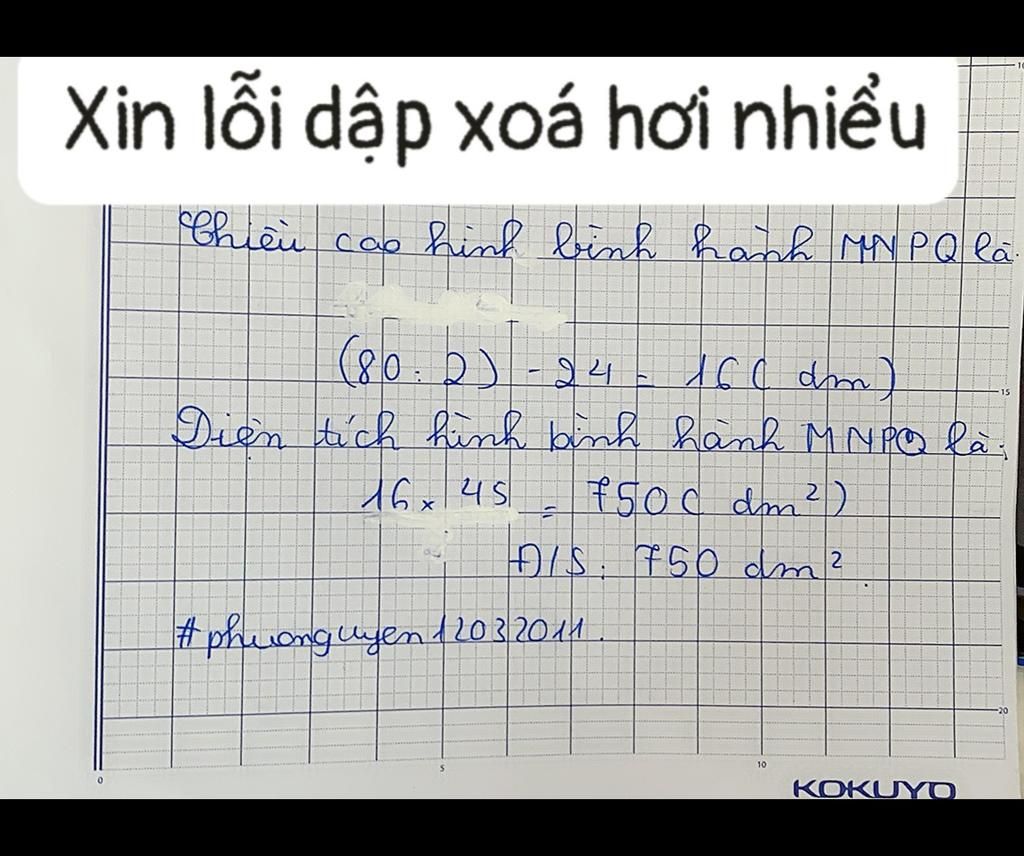 Xin lỗi dập xoá hơi nhiểu
Chiều cao hình bình hành MNPQ là.
(80 : 2) - 24 = 16 ( dm )
Diện tích hình bình hành MNPQ là:
16 x 45 = 750 ( dm²)
Đ/S: 750 dm².
#phuonguyen12032011.
15
20
0
5
10
KOKUYO